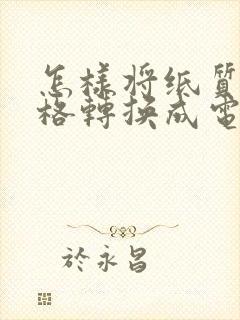 怎样将纸质
格轉换成電
於永昌